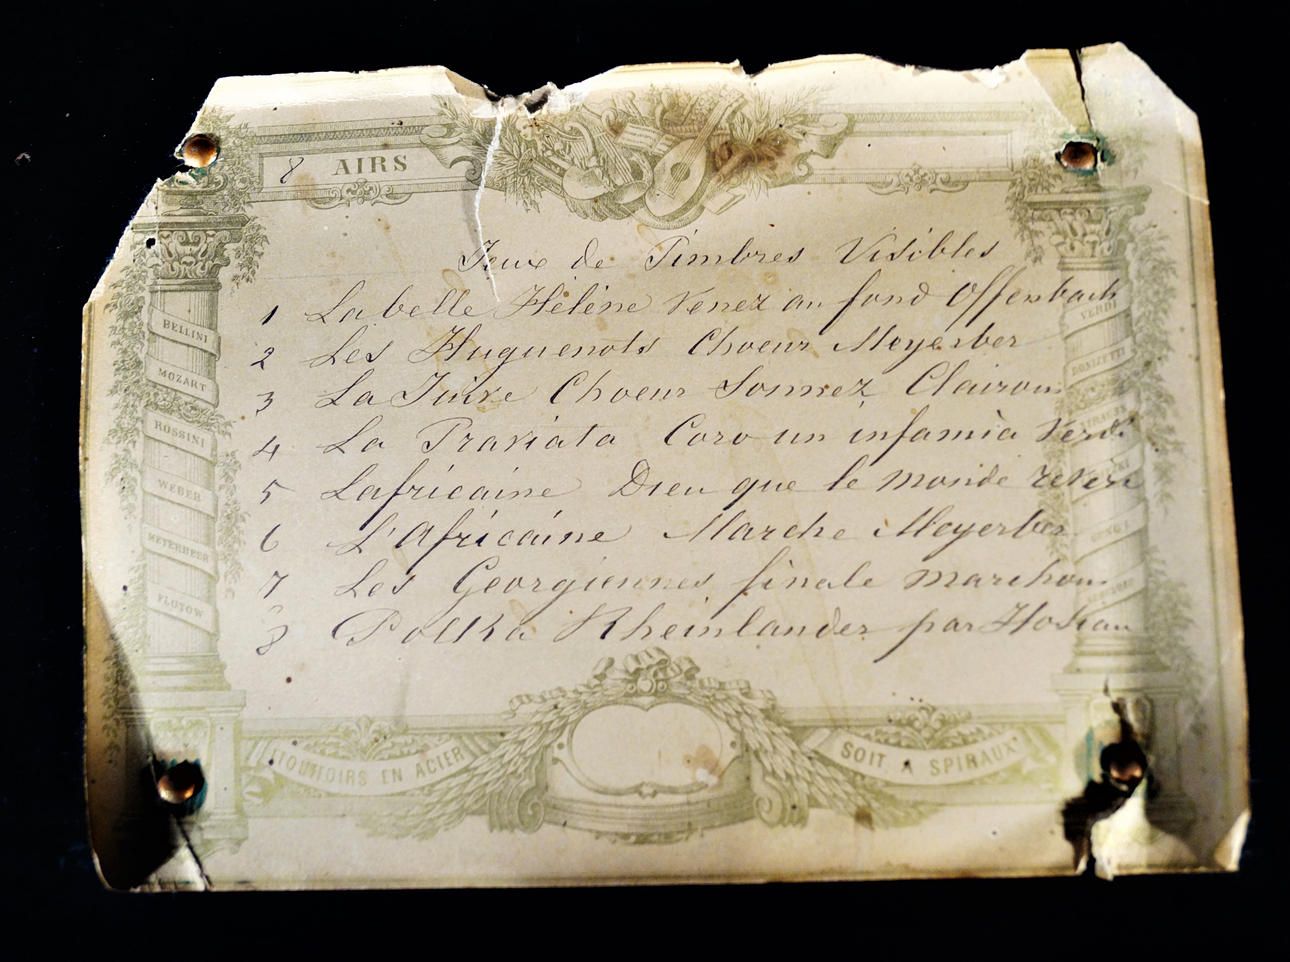 8 AIRS
Jeux de Timbres Visibles
1 La belle Hélène Venez au fond Offenbach
2 Les Huguenots Choeur Meyerber
3 La Juive Choeur Sonnez Clairons
4 La Traviata Coro un infamia Verdi
5 Lafricaine Dieu que le monde révère
6 L'Africaine Marche Meyerber
7 Les Georgiennes finale marchons
8 Polka Rheinlander par
BELLINI
MOZART
ROSSINI
WEBER
MEYERBEER
FLOTOW
VERDI
DONIZETTI
ETOUFFOIRS EN ACIER
SOIT, A SPIRAUX